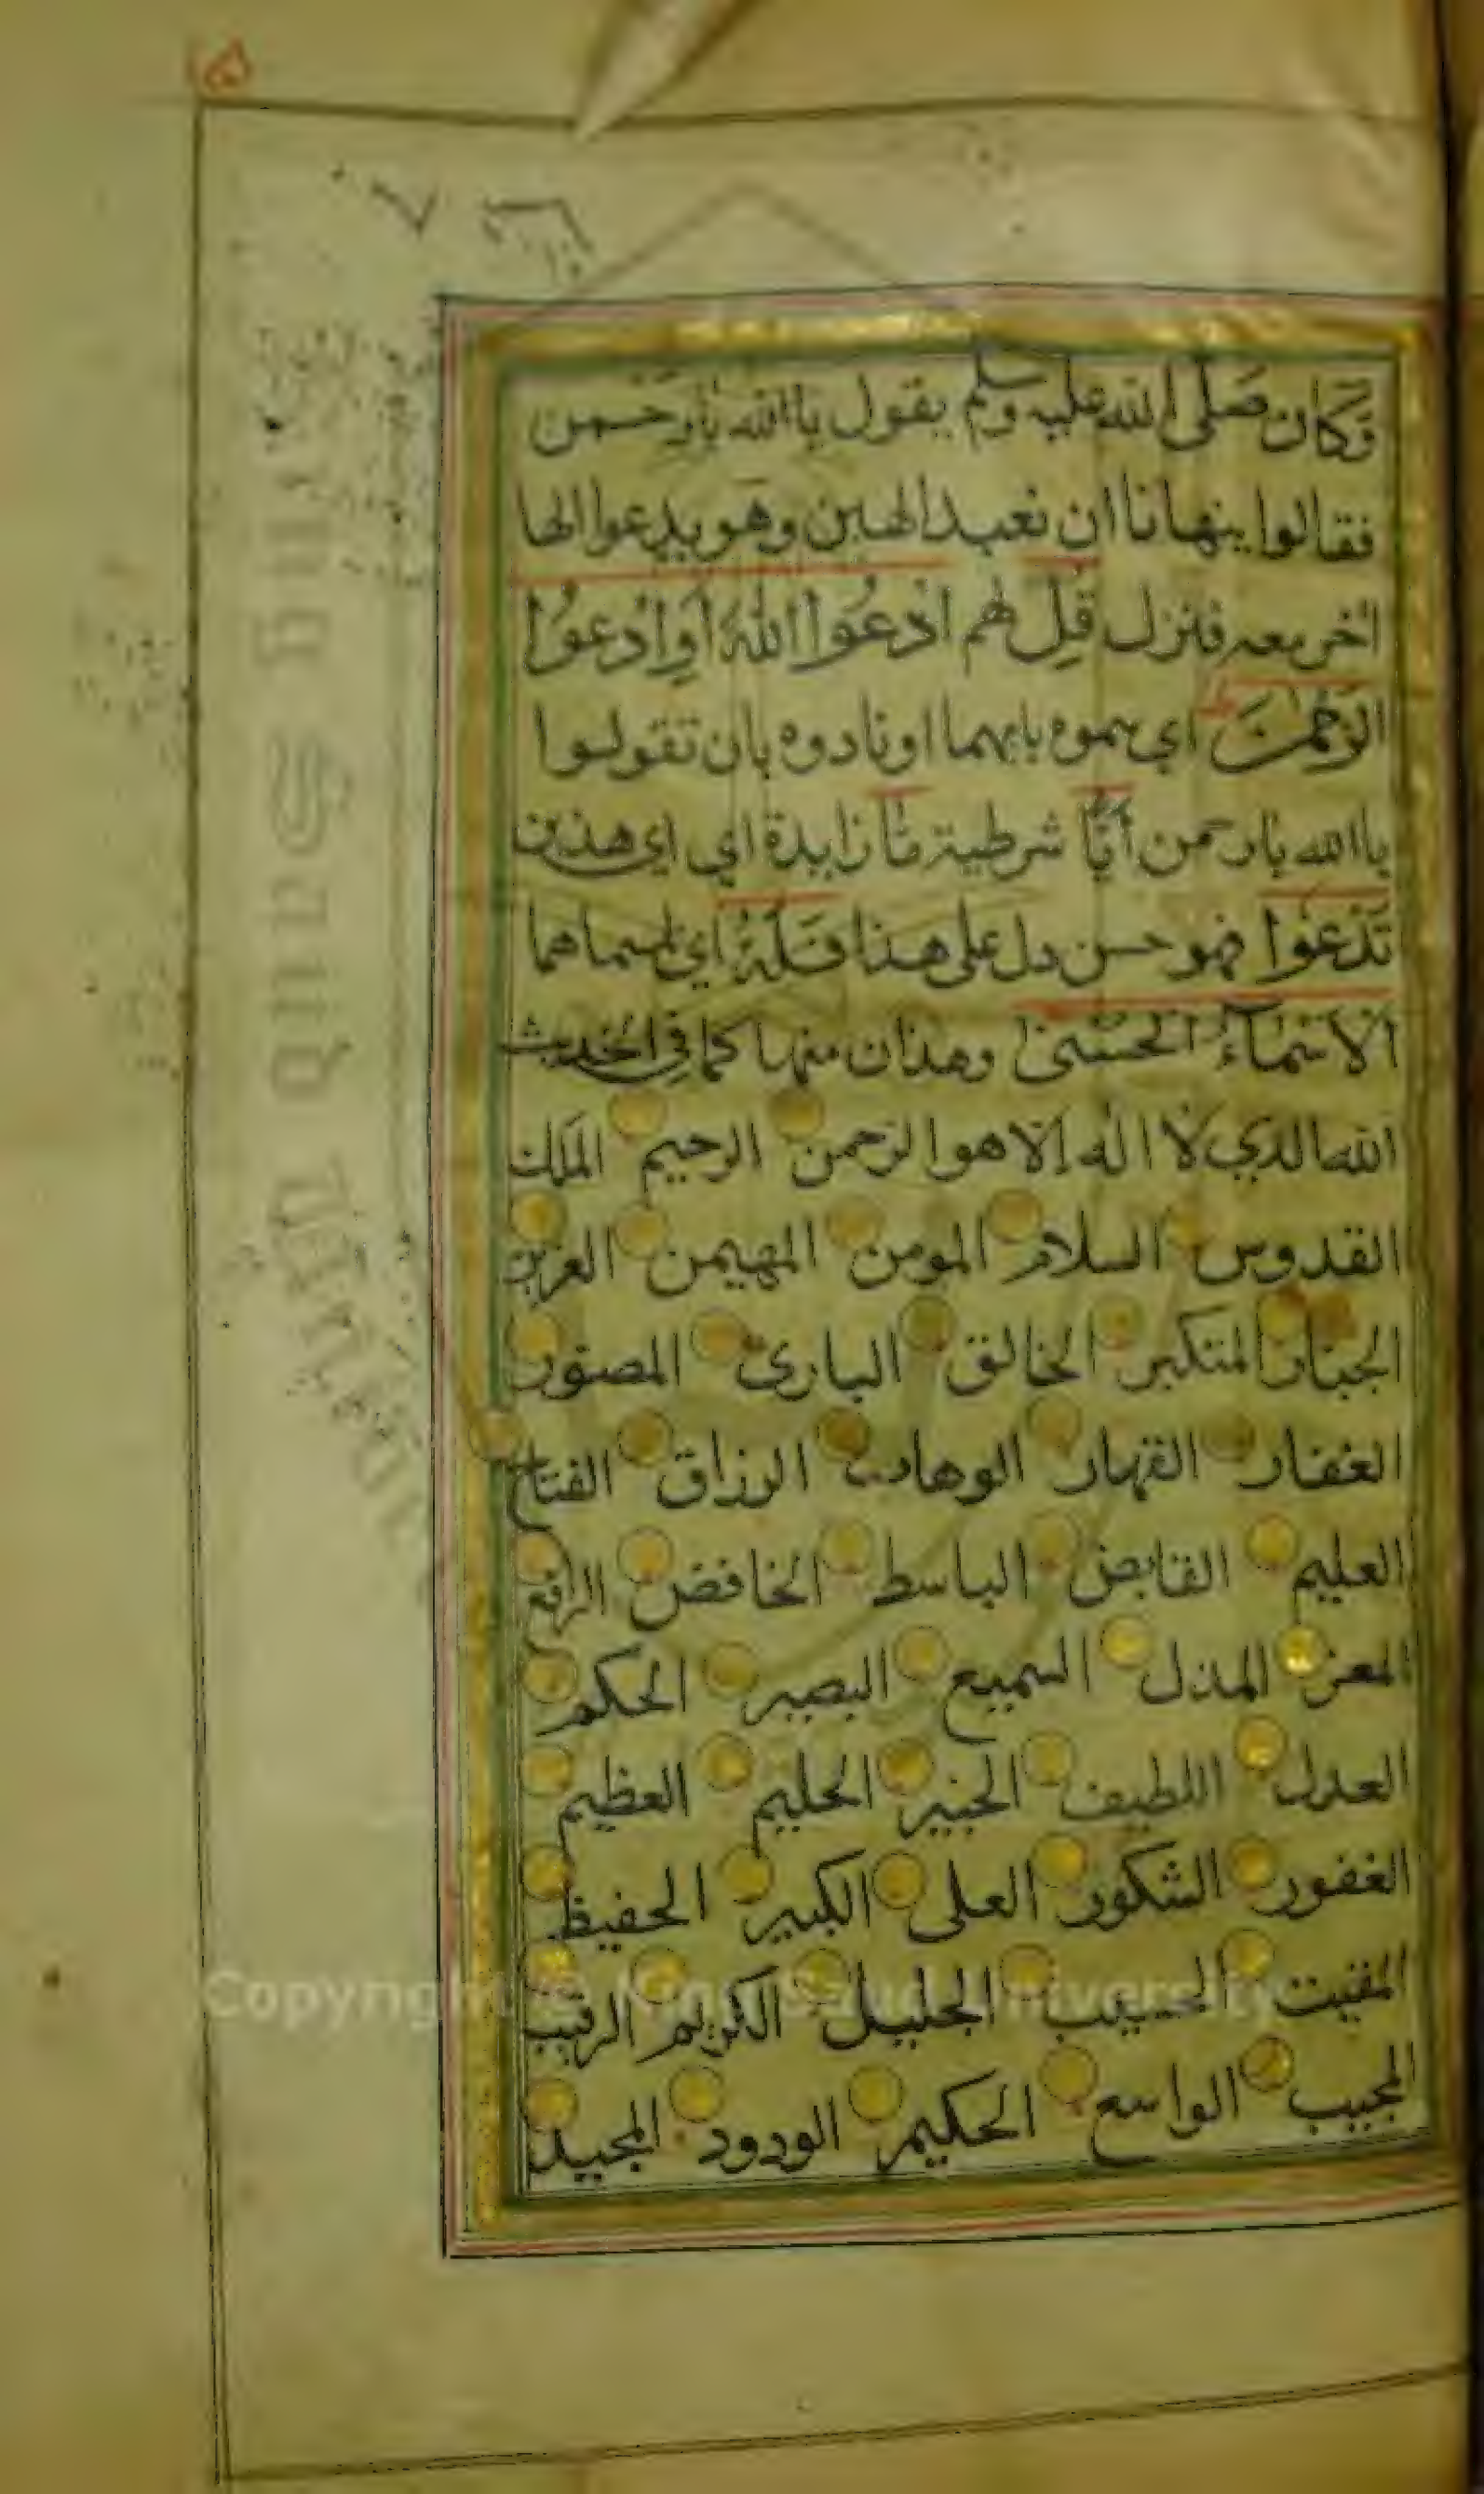 وكان صلى الله عليه وسلم يقول يا الله يا رحمن
فقالوا ينهانا ان نعبد الهين وهو يدعوا الها
اخر معه فنزل قل لهم ادعوا الله أو ادعوا
الرحمن اي سموه بايهما او نادوه بان تقولوا
يا الله يا رحمن أيا شرطية ما زايدة اي اي هذين
تدعوا فهو حسن دل على هذا فله اي لمسماهما
الأسماء الحسنى وهذان منها كما في الحديث
الله الذي لا اله الا هو الرحمن الرحيم الملك
القدوس السلام المومن المهيمن العزيز
الجبار المتكبر الخالق البارئ المصور
الغفار القهار الوهاب الرزاق الفتاح
العليم القابض الباسط الخافض الرافع
المعز المذل السميع البصير الحكم
العدل اللطيف الخبير الحليم العظيم
الغفور الشكور العلى الكبير الحفيظ
المقيت الحسيب الجليل الكريم الرقيب
المجيب الواسع الحكيم الودود المجيد
Copyright © King Saud University